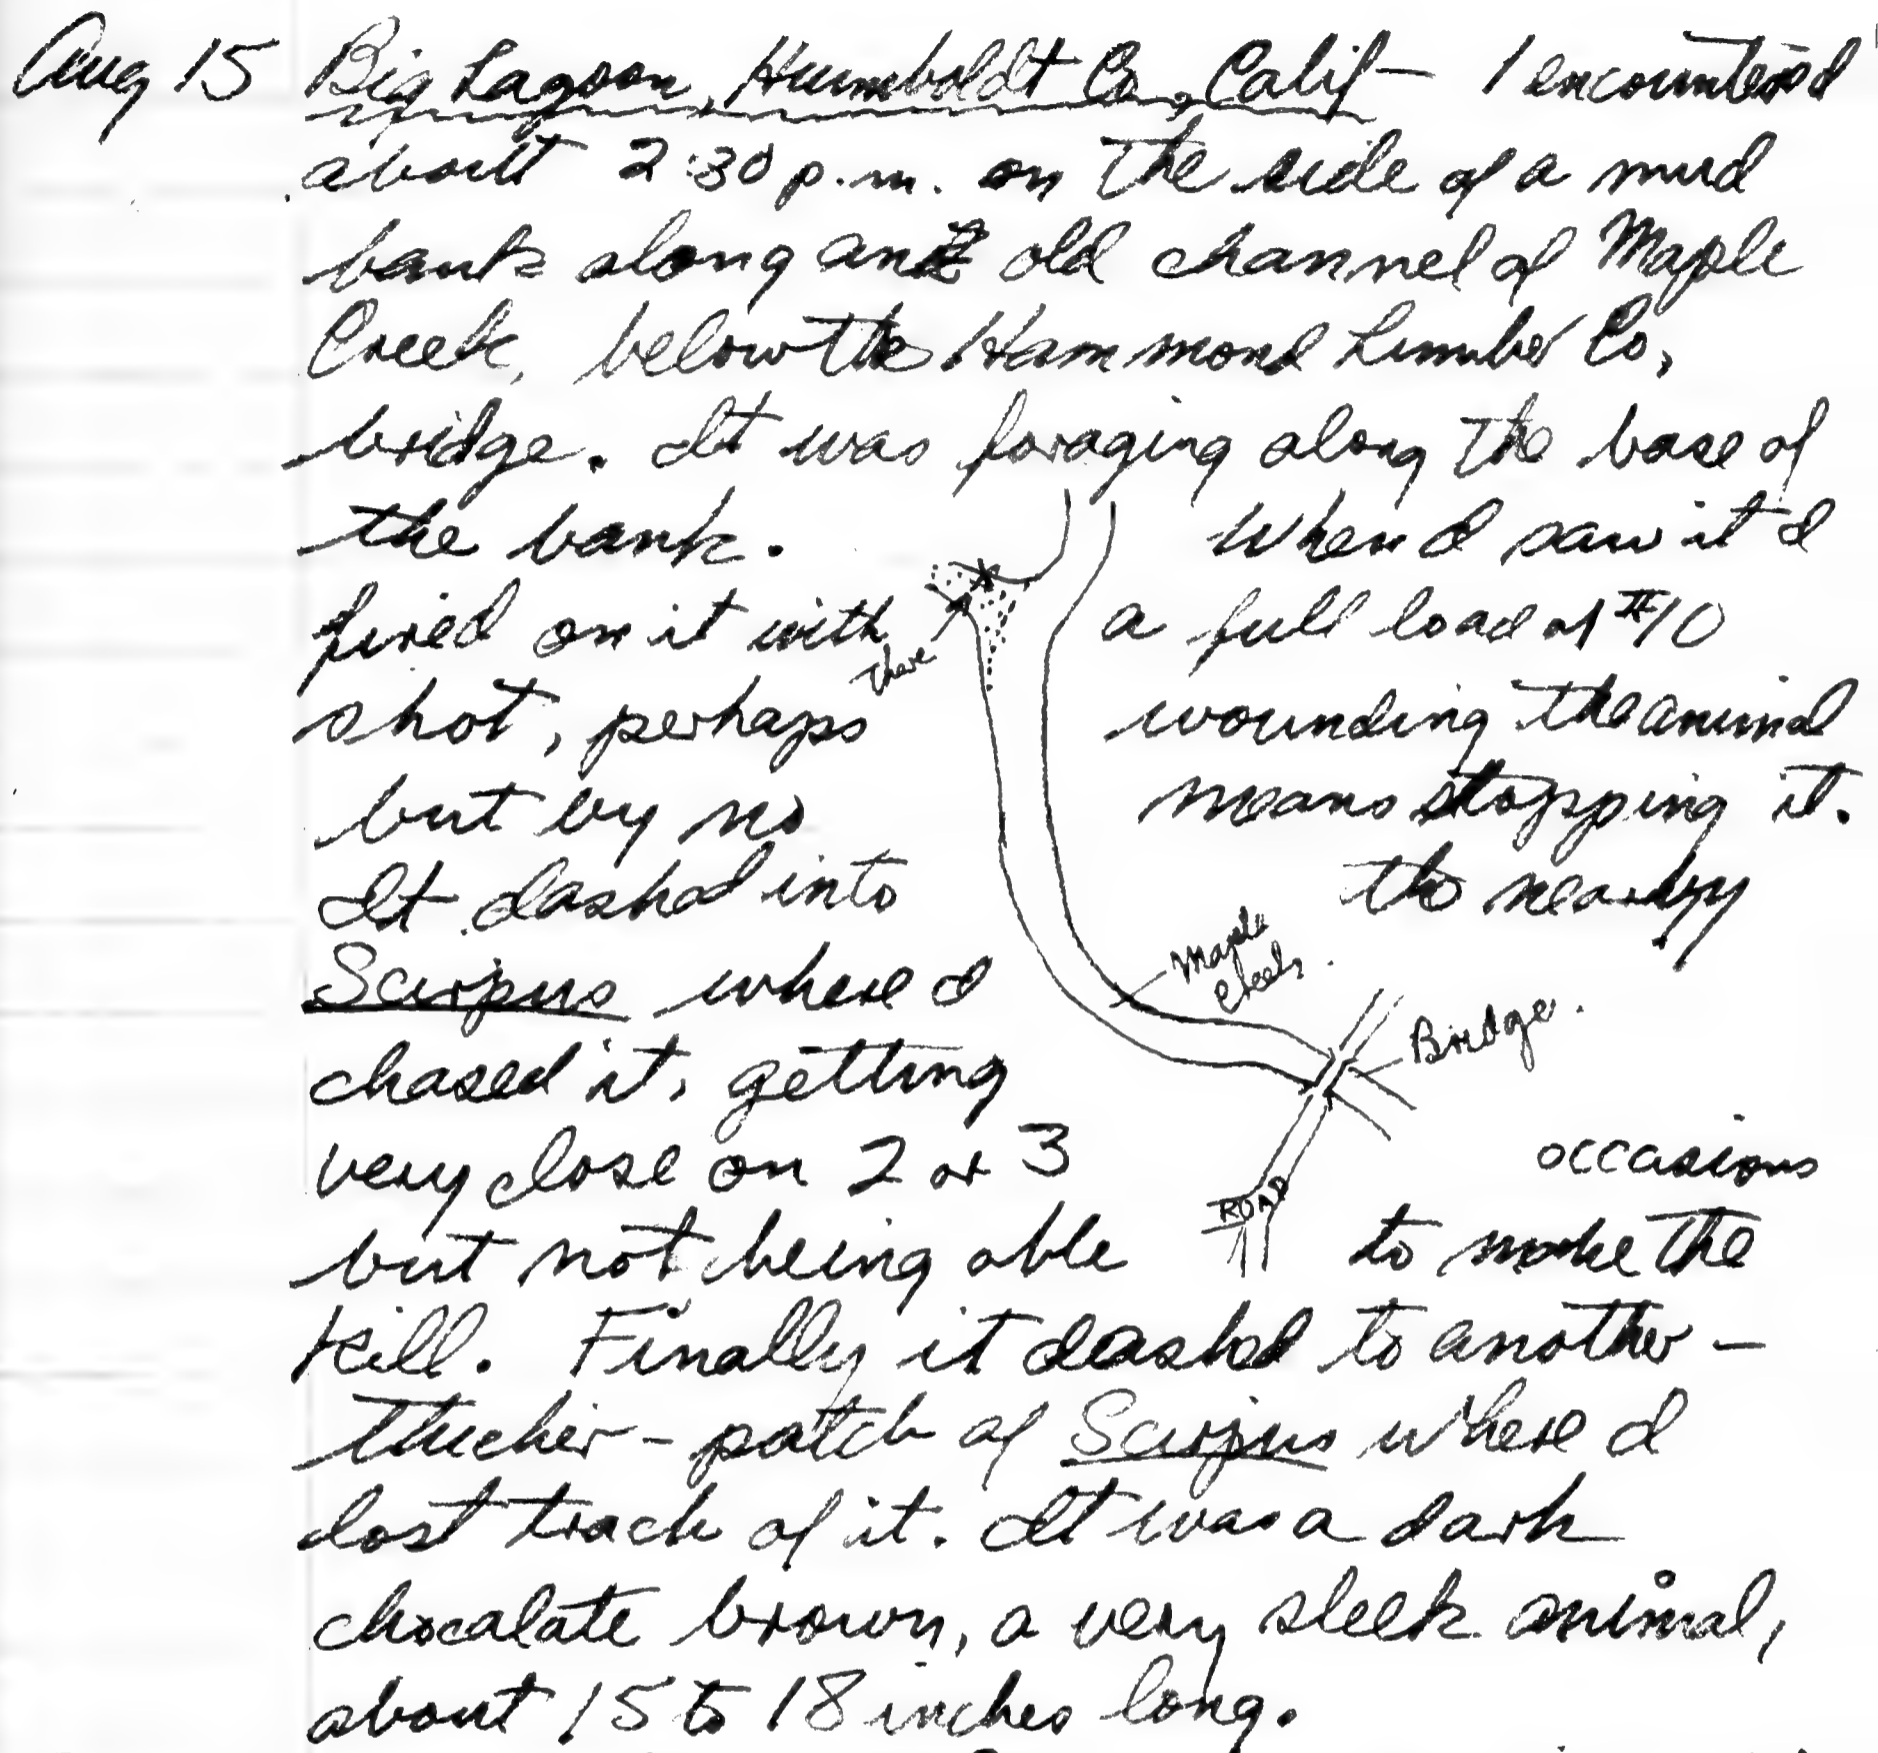 Aug 15 Big Lagoon, Humboldt Co., Calif — 1 encountered
about 2:30 p.m. on the side of a mud
bank along an old channel of Maple
Creek, below the Hammond Lumber Co.
bridge. It was foraging along the base of
the bank. When I saw it I
fired on it with a full load of #10
there
shot, perhaps wounding the animal
but by no means stopping it.
It dashed into the nearby
Maple
Creek.
Scirpus where I
Bridge.
chased it, getting
very close on 2 or 3 occasions
ROAD
but not being able to make the
kill. Finally it dashed to another -
thicker - patch of Scirpus where I
lost track of it. It was a dark
chocalate brown, a very sleek animal,
about 15 to 18 inches long.